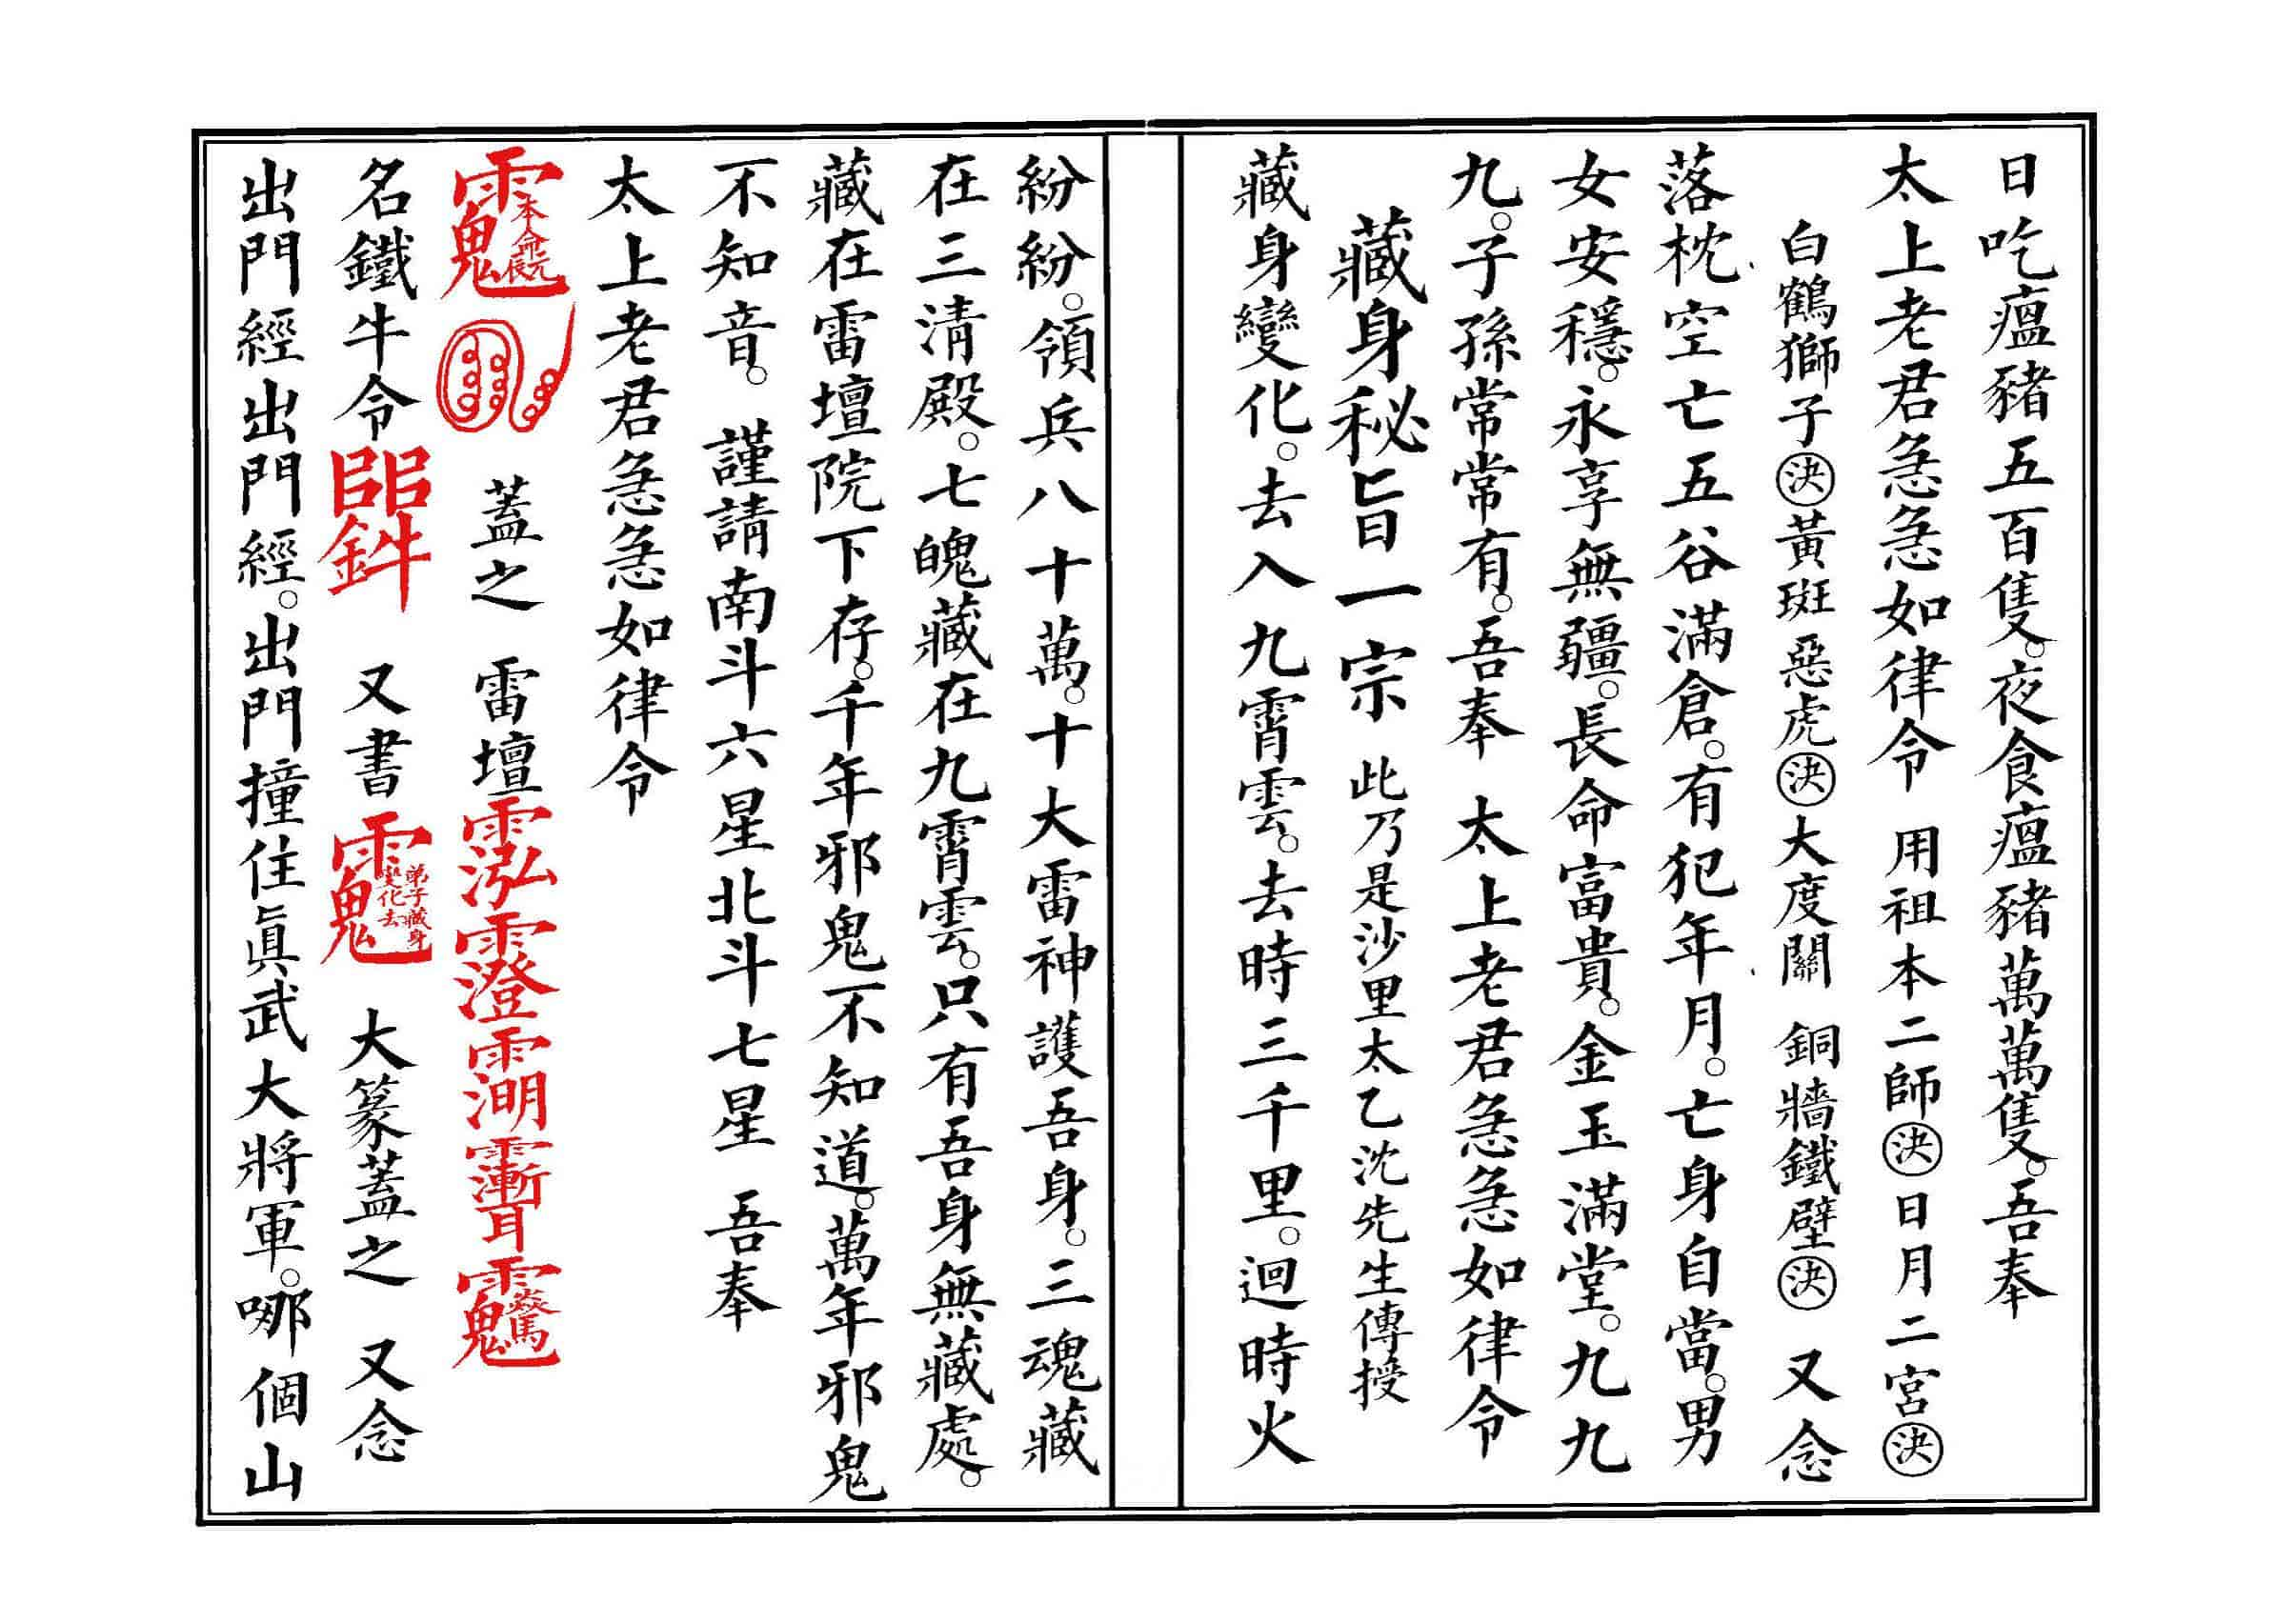 日吃瘟豬五百隻。夜食瘟豬萬萬隻。吾奉
太上老君急急如律令 用祖本二師㊋決日月二宮決
白鶴獅子決黃斑惡虎決大度關 銅牆鐵壁決 又念
落枕空亡五谷滿倉。有犯年月。亡身自當。男
女安穩。永享無疆。長命富貴。金玉滿堂。九九
九。子孫常常有。吾奉 太上老君急急如律令
藏身秘旨一宗 此乃是沙里太乙沈先生傳授
藏身變化。去入九霄雲。去時三千里。迴時火
紛紛。領兵八十萬。十大雷神護吾身。三魂藏
在三清殿。七魄藏在九霄雲。只有吾身無藏處。
藏在雷壇院下存。千年邪鬼不知道。萬年邪鬼
不知音。 謹請南斗六星北斗七星 吾奉
太上老君急急如律令
本命元辰 蓋之 雷壇
名鐵牛令 又書 弟子藏身變化去 大篆蓋之 又念
出門經出門經。出門撞住眞武大將軍。哪個山